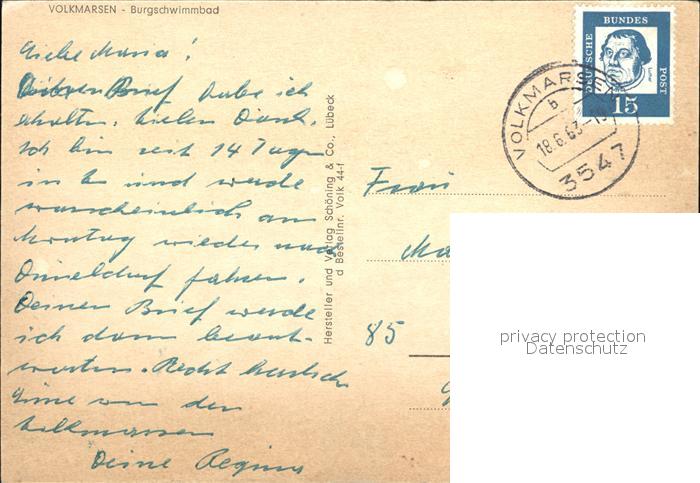 VOLKMARSEN - Burgschwimmbad
Liebe Maria!
Deinen Brief habe ich
erhalten. Vielen Dank.
Ich bin seit 14 Tagen
in und werde
warscheinlich am
Montag wieder nach
Düsseldorf fahren.
Deinen Brief werde
ich dann beant-
worten. Recht herzliche
Grüße von der
Volkmarsen
Deine Regina
Hersteller und Verlag Schöning & Co., Lübeck
d Bestellnr. Volk 44-f
DEUTSCHE BUNDES POST
Luther
15
VOLKMARSEN
b
18.6.63-19
3547
Frau
Ma
85
privacy protection
Datenschutz